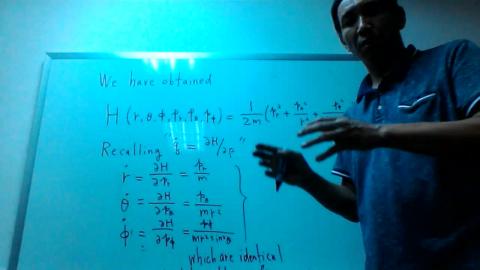 We have obtained
H (r, θ, ϕ, p_r, p_θ, p_ϕ) = 1/2m (p_r²+ p_θ²/r² + p_ϕ²
Recalling "q̇ = ∂H/∂p"
ṙ = ∂H/∂p_r = p_r/m
θ̇ = ∂H/∂p_θ = p_θ/mr²
ϕ̇ = ∂H/∂p_ϕ = p_ϕ/mr²sin²θ
which are identical